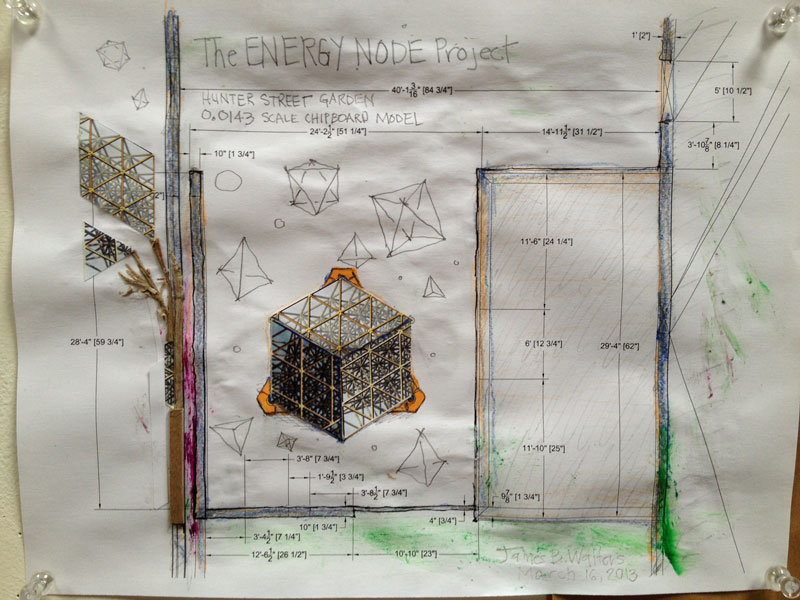 The ENERGY NODE Project
1' [2"]
40'-1 3/16" [84 3/4"]
5' [10 1/2"]
HUNTER STREET GARDEN
0.0143 SCALE CHIPBOARD MODEL
24'-2 1/2" [51 1/4"]
14'-11 1/2" [31 1/2"]
3'-10 7/8" [8 1/4"]
10" [1 3/4"]
2"]
11'-6" [24 1/4"]
28'-4" [59 3/4"]
6' [12 3/4"]
29'-4" [62"]
11'-10" [25"]
3'-8" [7 3/4"]
1'-9 1/2" [3 3/4"]
3'-8 1/2" [7 3/4"]
9 7/8" [1 3/4"]
10" [1 3/4"]
4" [3/4"]
3'-4 1/2" [7 1/4"]
12'-6 1/2" [26 1/2"]
10'-10" [23"]
James B. Walters
March 16, 2013